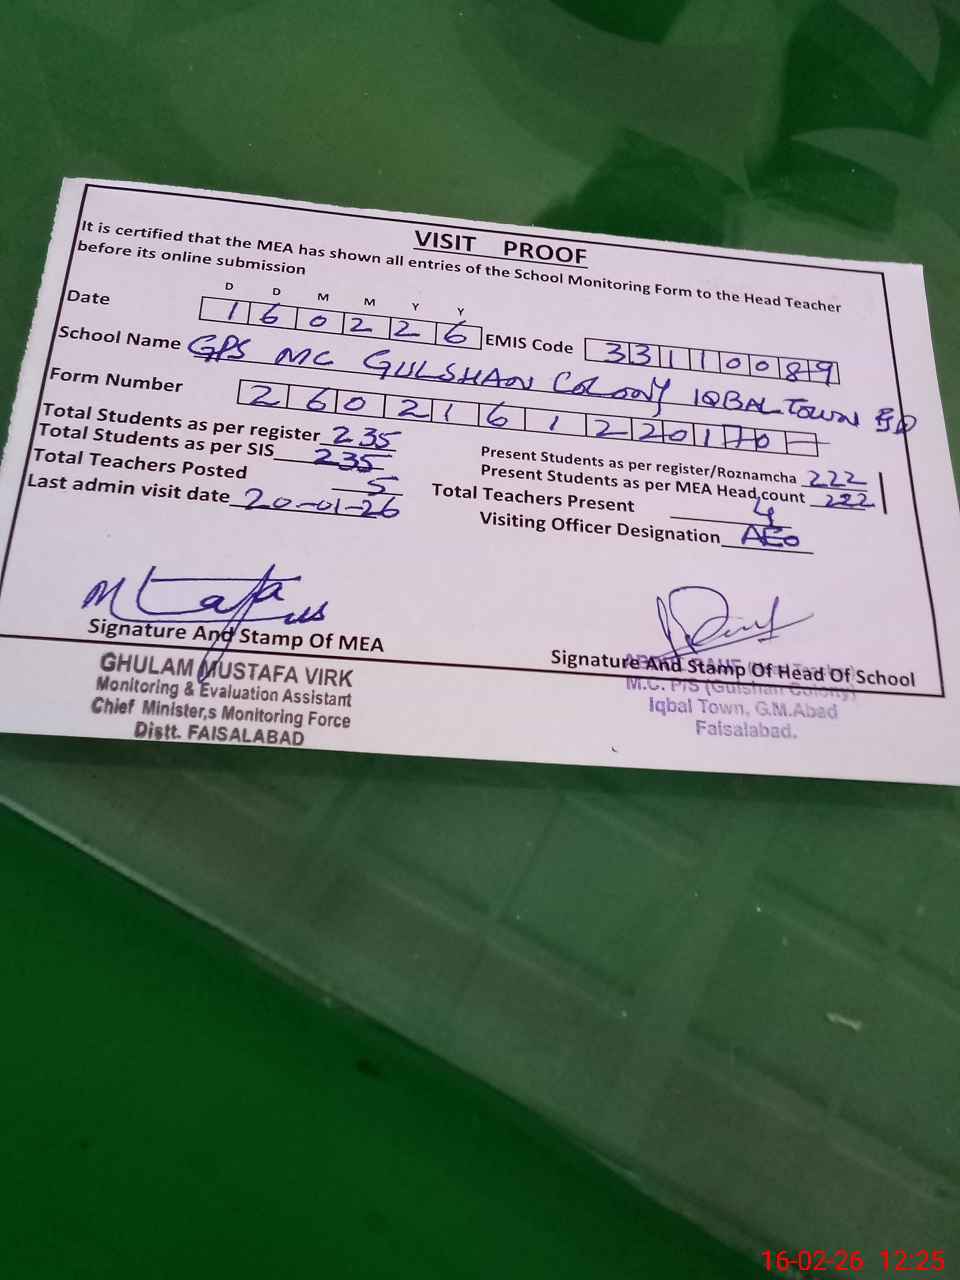 VISIT PROOF
It is certified that the MEA has shown all entries of the School Monitoring Form to the Head Teacher
before its online submission
D D M M Y Y
Date 160226 EMIS Code 33110089
School Name GPS MC GULSHAN COLONY IQBAL TOWN FSD
Form Number 2602161220170-
Total Students as per register 235 Present Students as per register/Roznamcha 222
Total Students as per SIS 235 Present Students as per MEA Head count 222
Total Teachers Posted 5 Total Teachers Present 4
Last admin visit date 20-01-26 Visiting Officer Designation AEO
Signature And Stamp Of MEA Signature And Stamp Of Head Of School
GHULAM MUSTAFA VIRK
Monitoring & Evaluation Assistant
Chief Minister,s Monitoring Force
Distt. FAISALABAD
M.C. P/S (Gulshan Colony)
Iqbal Town, G.M.Abad
Faisalabad.
16-02-26 12:25